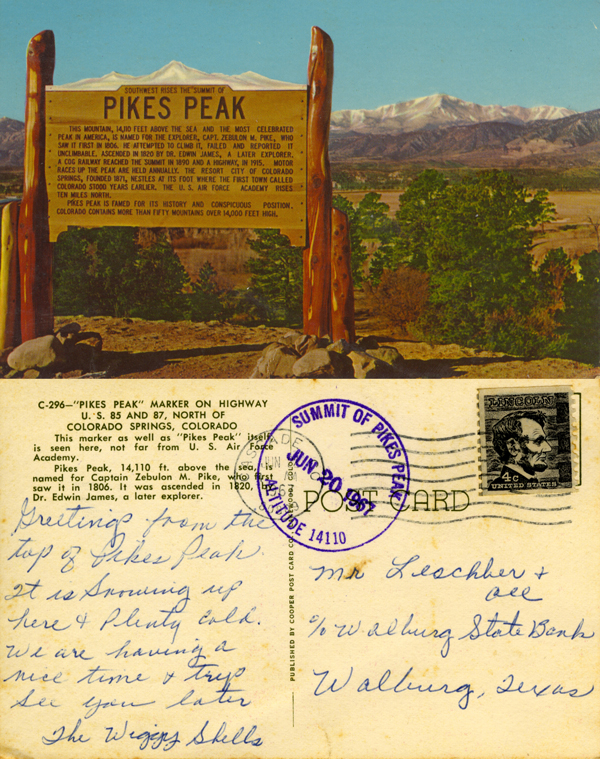 SOUTHWEST RISES THE SUMMIT OF
PIKES PEAK
THIS MOUNTAIN, 14,110 FEET ABOVE THE SEA AND THE MOST CELEBRATED
PEAK IN AMERICA, IS NAMED FOR THE EXPLORER, CAPT. ZEBULON M. PIKE, WHO
SAW IT FIRST IN 1806. HE ATTEMPTED TO CLIMB IT, FAILED AND REPORTED IT
UNCLIMBABLE. ASCENDED IN 1820 BY DR. EDWIN JAMES, A LATER EXPLORER.
A COG RAILWAY REACHED THE SUMMIT IN 1890 AND A HIGHWAY, IN 1915. MOTOR
RACES UP THE PEAK ARE HELD ANNUALLY. THE RESORT CITY OF COLORADO
SPRINGS, FOUNDED 1871, NESTLES AT ITS FOOT WHERE THE FIRST TOWN CALLED
COLORADO STOOD YEARS EARLIER. THE U. S. AIR FORCE ACADEMY RISES
TEN MILES NORTH.
PIKES PEAK IS FAMED FOR ITS HISTORY AND CONSPICUOUS POSITION.
COLORADO CONTAINS MORE THAN FIFTY MOUNTAINS OVER 14,000 FEET HIGH.
C-296—"PIKES PEAK" MARKER ON HIGHWAY
U. S. 85 AND 87, NORTH OF
COLORADO SPRINGS, COLORADO
This marker as well as "Pikes Peak" itself
is seen here, not far from U. S. Air Force
Academy.
Pikes Peak, 14,110 ft. above the sea, is
named for Captain Zebulon M. Pike, who first
saw it in 1806. It was ascended in 1820, by
Dr. Edwin James, a later explorer.
Greetings from the
top of Pikes Peak.
It is Snowing up
here & Plenty cold.
We are having a
nice time & trip
See you later
The Shells
PUBLISHED BY COOPER POST CARD CO.
SUMMIT OF PIKES PEAK
JUN 20 1967
ALTITUDE 14110
JUN
POST CARD
LINCOLN
4c
UNITED STATES
Mr Leschber &
all
% Walburg State Bank
Walburg, Texas